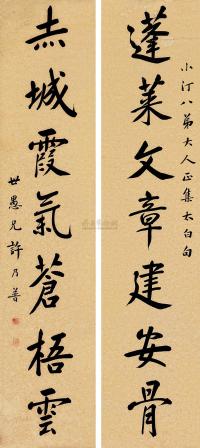 小汀八弟大人正集太白句
蓬萊文章建安骨
赤城霞氣蒼梧雲
世愚兄許乃普